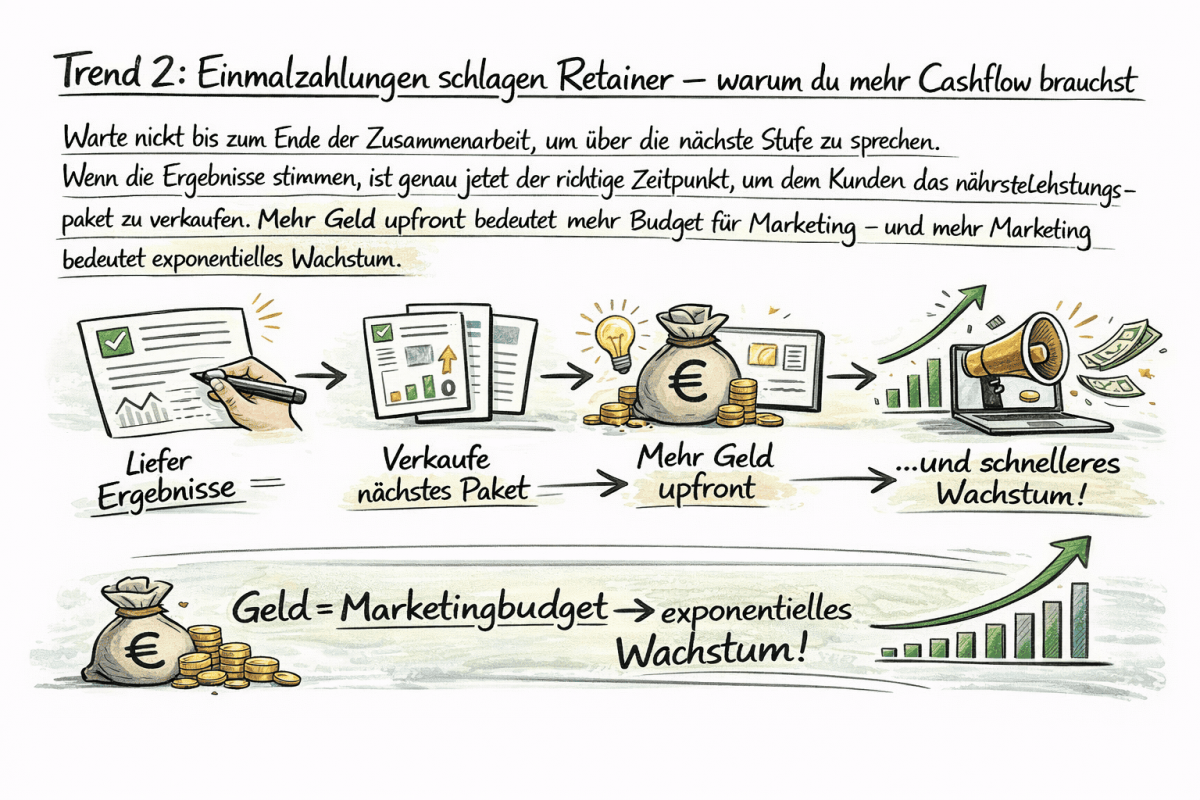 Trend 2: Einmalzahlungen schlagen Retainer – warum du mehr Cashflow brauchst
Warte nickt bis zum Ende der Zusammenarbeit, um über die nächste Stufe zu sprechen.
Wenn die Ergebnisse stimmen, ist genau jetet der richtige Zeitpunkt, um dem Kunden das nährsteLehstungs-
paket zu verkaufen. Mehr Geld upfront bedeutet mehr Budget für Marketing – und mehr Marketing
bedeutet exponentielles Wachstum.
€
Liefer
Ergebnisse
Verkaufe
nächstes Paket
Mehr Geld
upfront
...und schnelleres
Wachstum!
€
Geld = Marketingbudget → exponentielles
Wachstum!